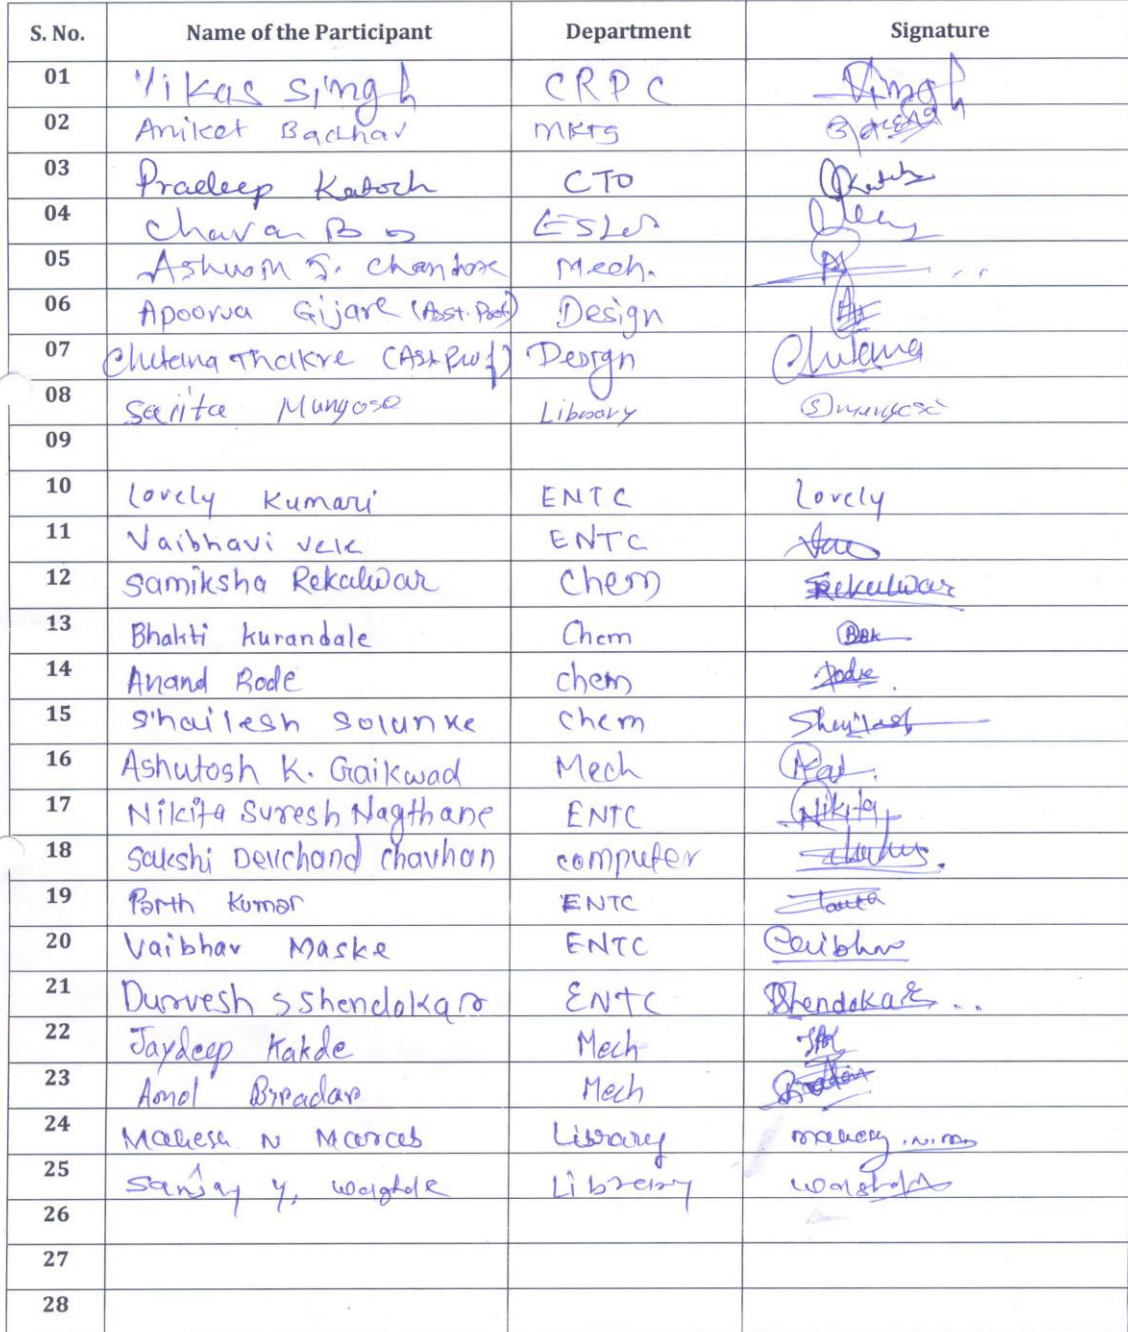 S. No. Name of the Participant Department Signature
01 Vikas Singh CRPC Singh
02 Aniket Badhav MKTG
03 Pradeep Katoch CTO
04 Chavan B
05 Ashwin S. Mech.
06 Apoorva Gijare (Asst. Prof.) Design
07 Chetana Thakre (Asst Prof) Design Chetana
08 Sarita Mungose Library
09
10 Lovely Kumari ENTC Lovely
11 Vaibhavi Vele ENTC
12 Samiksha Rekalwar Chem Rekalwar
13 Bhakti Kurandale Chem
14 Anand Rode chem Rode
15 Shailesh Solunke chem Shailesh
16 Ashutosh K. Gaikwad Mech
17 Nikita Suresh Nagthane ENTC Nikita
18 Sakshi Devchand Chavhan computer
19 Parth Kumar ENTC
20 Vaibhav Maske ENTC Vaibhav
21 Durvesh S Shendokar ENTC Shendokar
22 Jaydeep Kakde Mech
23 Amol Biradar Mech
24 Mahesh N Library
25 Sanjay Y. Library
26
27
28